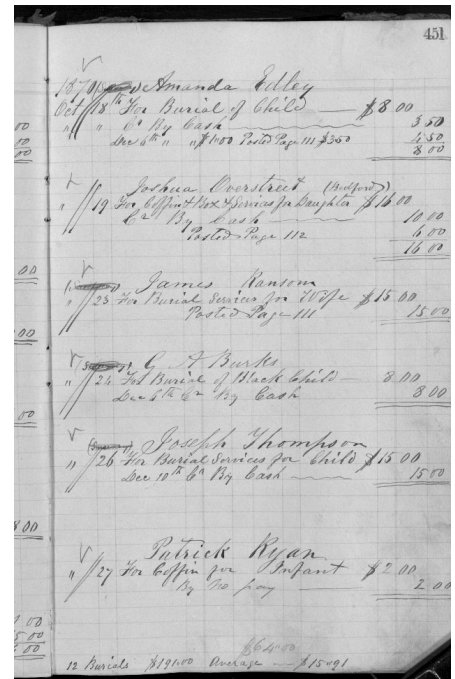 451
1870 Amanda Edley
Oct 18th For Burial of Child — $8 00
" " Cr By Cash — 3 50
Dec 6th " " $1.00 Posted Page 111 $3.50 4.50
8 00
Joshua Overstreet (Bedford)
" 19 For Coffin & Box & Services for Daughter $16 00
Cr By Cash — 10 00
Posted Page 112 6 00
16 00
James Ransom
" 23 For Burial Services for Wife $15 00
Posted Page 111 15 00
G A Burks
" 24 For Burial of Black Child — 8 00
Dec 6th Cr By Cash 8 00
Joseph Thompson
" 26 For Burial Services for Child $15 00
Dec 10th Cr By Cash — 15 00
Patrick Ryan
" 27 For Coffin for Infant $2 00
By no pay — 2 00
$64.00
12 Burials $191.00 Average — $15.091